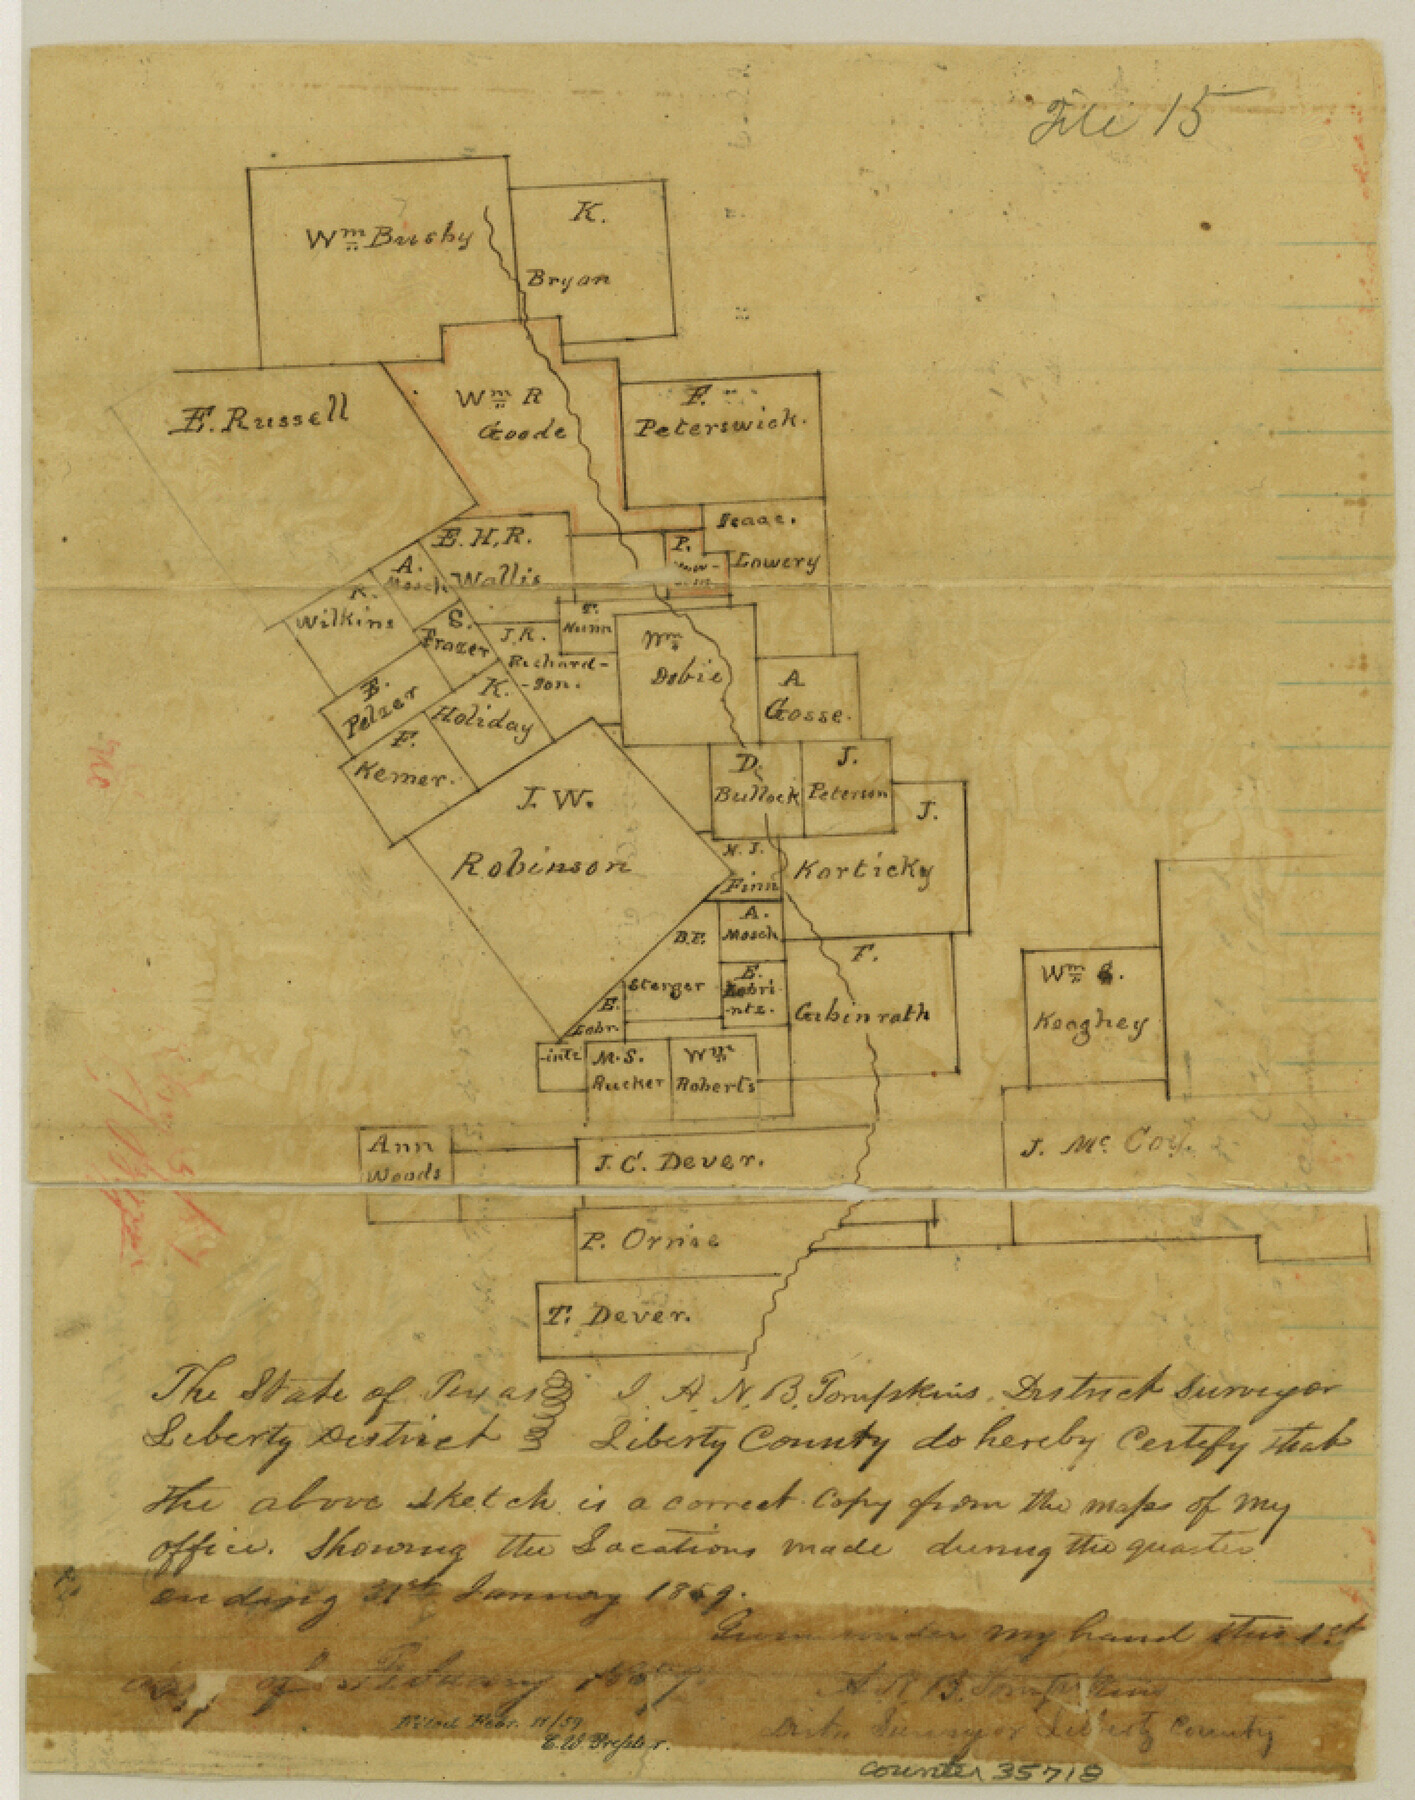 File 15
Wm Busby
K.
Bryan
E. Russell
Wm R
Goode
F.
Peterswick.
Isaac.
Lowery
P.
E. H. R.
Wallis
A.
Mosch
K.
Wilkins
S.
Frazer
J. R.
Richard-
-son.
T.
Nunn
Wm
Dobie
A
Gosse.
E.
Pelzer
K.
Holiday
F.
Kemer.
J. W.
Robinson
D.
Bullock
J.
Peterson
J.
Korticky
Finn
A.
Mosch
B.E.
Sterger
E.
-ntz.
F.
Gibinrath
E.
-intz
M. S.
Rucker
Wm
Roberts
Wm
Keaghey
J. Mc Coy.
Ann
Woods
J. C. Dever.
P. Ornie
T. Dever.
The State of Texas I A. N. B. Tompkins District Surveyor
Liberty District Liberty County do hereby Certify that
the above sketch is a correct copy from the maps of my
office. Showing the Locations made during the quarter
ending 31st January 1859.
Given under my hand this 1st
day of February 1859.
A. N. B. Tompkins
Distr Surveyor Liberty County
Filed Febr. 11/59
counter 35718